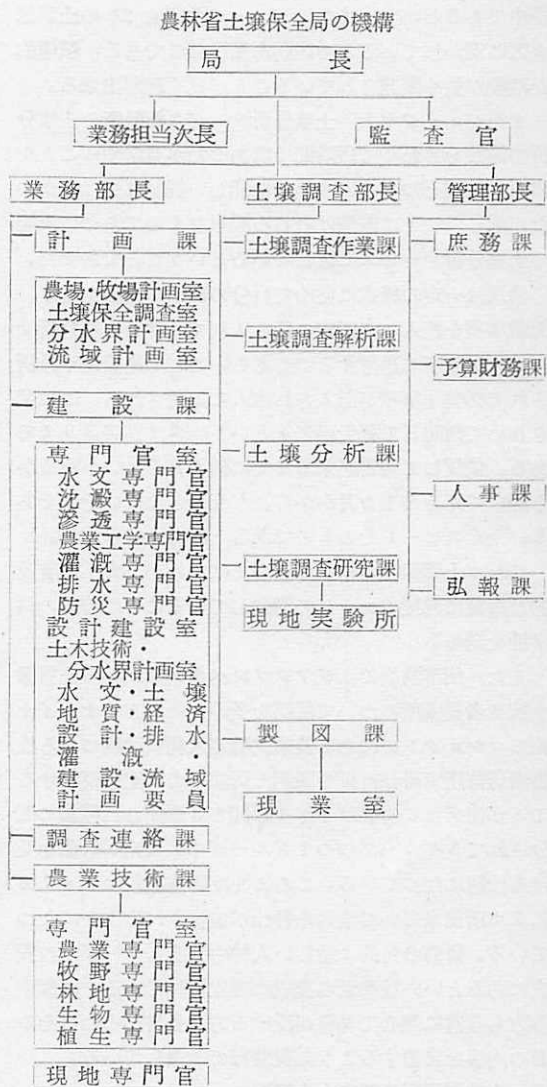 農林省土壌保全局の機構
局長
業務担当次長
監査官
業務部長
土壌調査部長
管理部長
計画課
農場・牧場計画室
土壌保全調査室
分水界計画室
流域計画室
建設課
専門官室
水文専門官
沈澱専門官
滲透専門官
農業工学専門官
灌漑専門官
排水専門官
防災専門官
設計建設室
土木技術・
分水界計画室
水文・土壌
地質・経済
設計・排水
灌漑・
建設流域
計画要員
調査連絡課
農業技術課
専門官室
農業専門官
牧野専門官
林地専門官
生物専門官
植生専門官
現地専門官
土壌調査作業課
土壌調査解析課
土壌分析課
土壌調査研究課
現地実験所
製図課
現業室
庶務課
予算財務課
人事課
弘報課